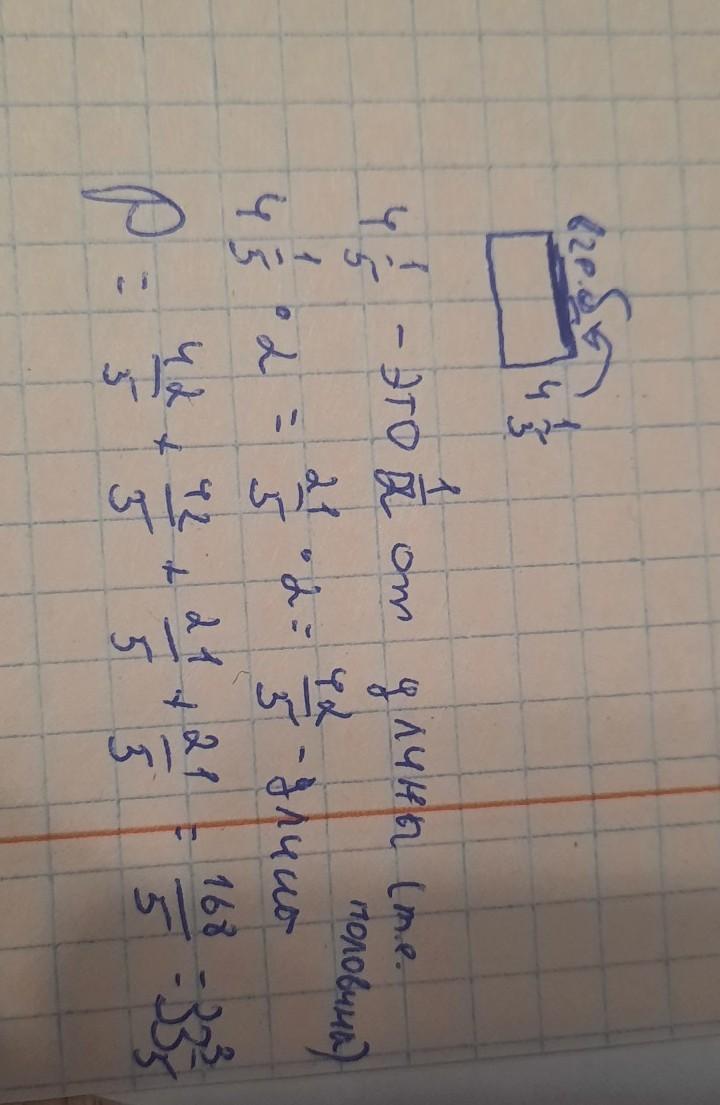 в 2 р. б
4 1/5
4 1/5 - это 1/2 от длины (т.е. половина)
4 1/5 · 2 = 21/5 · 2 = 42/5 - длина
P = 42/5 + 42/5 + 21/5 + 21/5 = 168/5 = 33 3/5